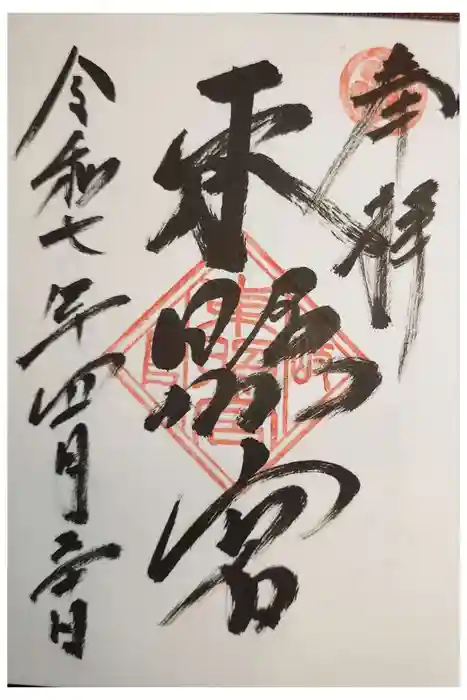 奉拝
東照宮
令和七年四月二十日